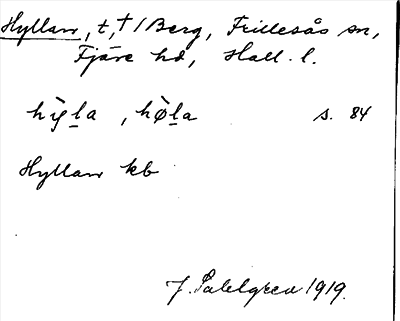 Hyllan, t, † / Berg, Frillesås sn,
Fjäre hd, Hall. l.
hỳla, hø̀la s. 84
Hyllan kb
J. Sahlgren 1919.